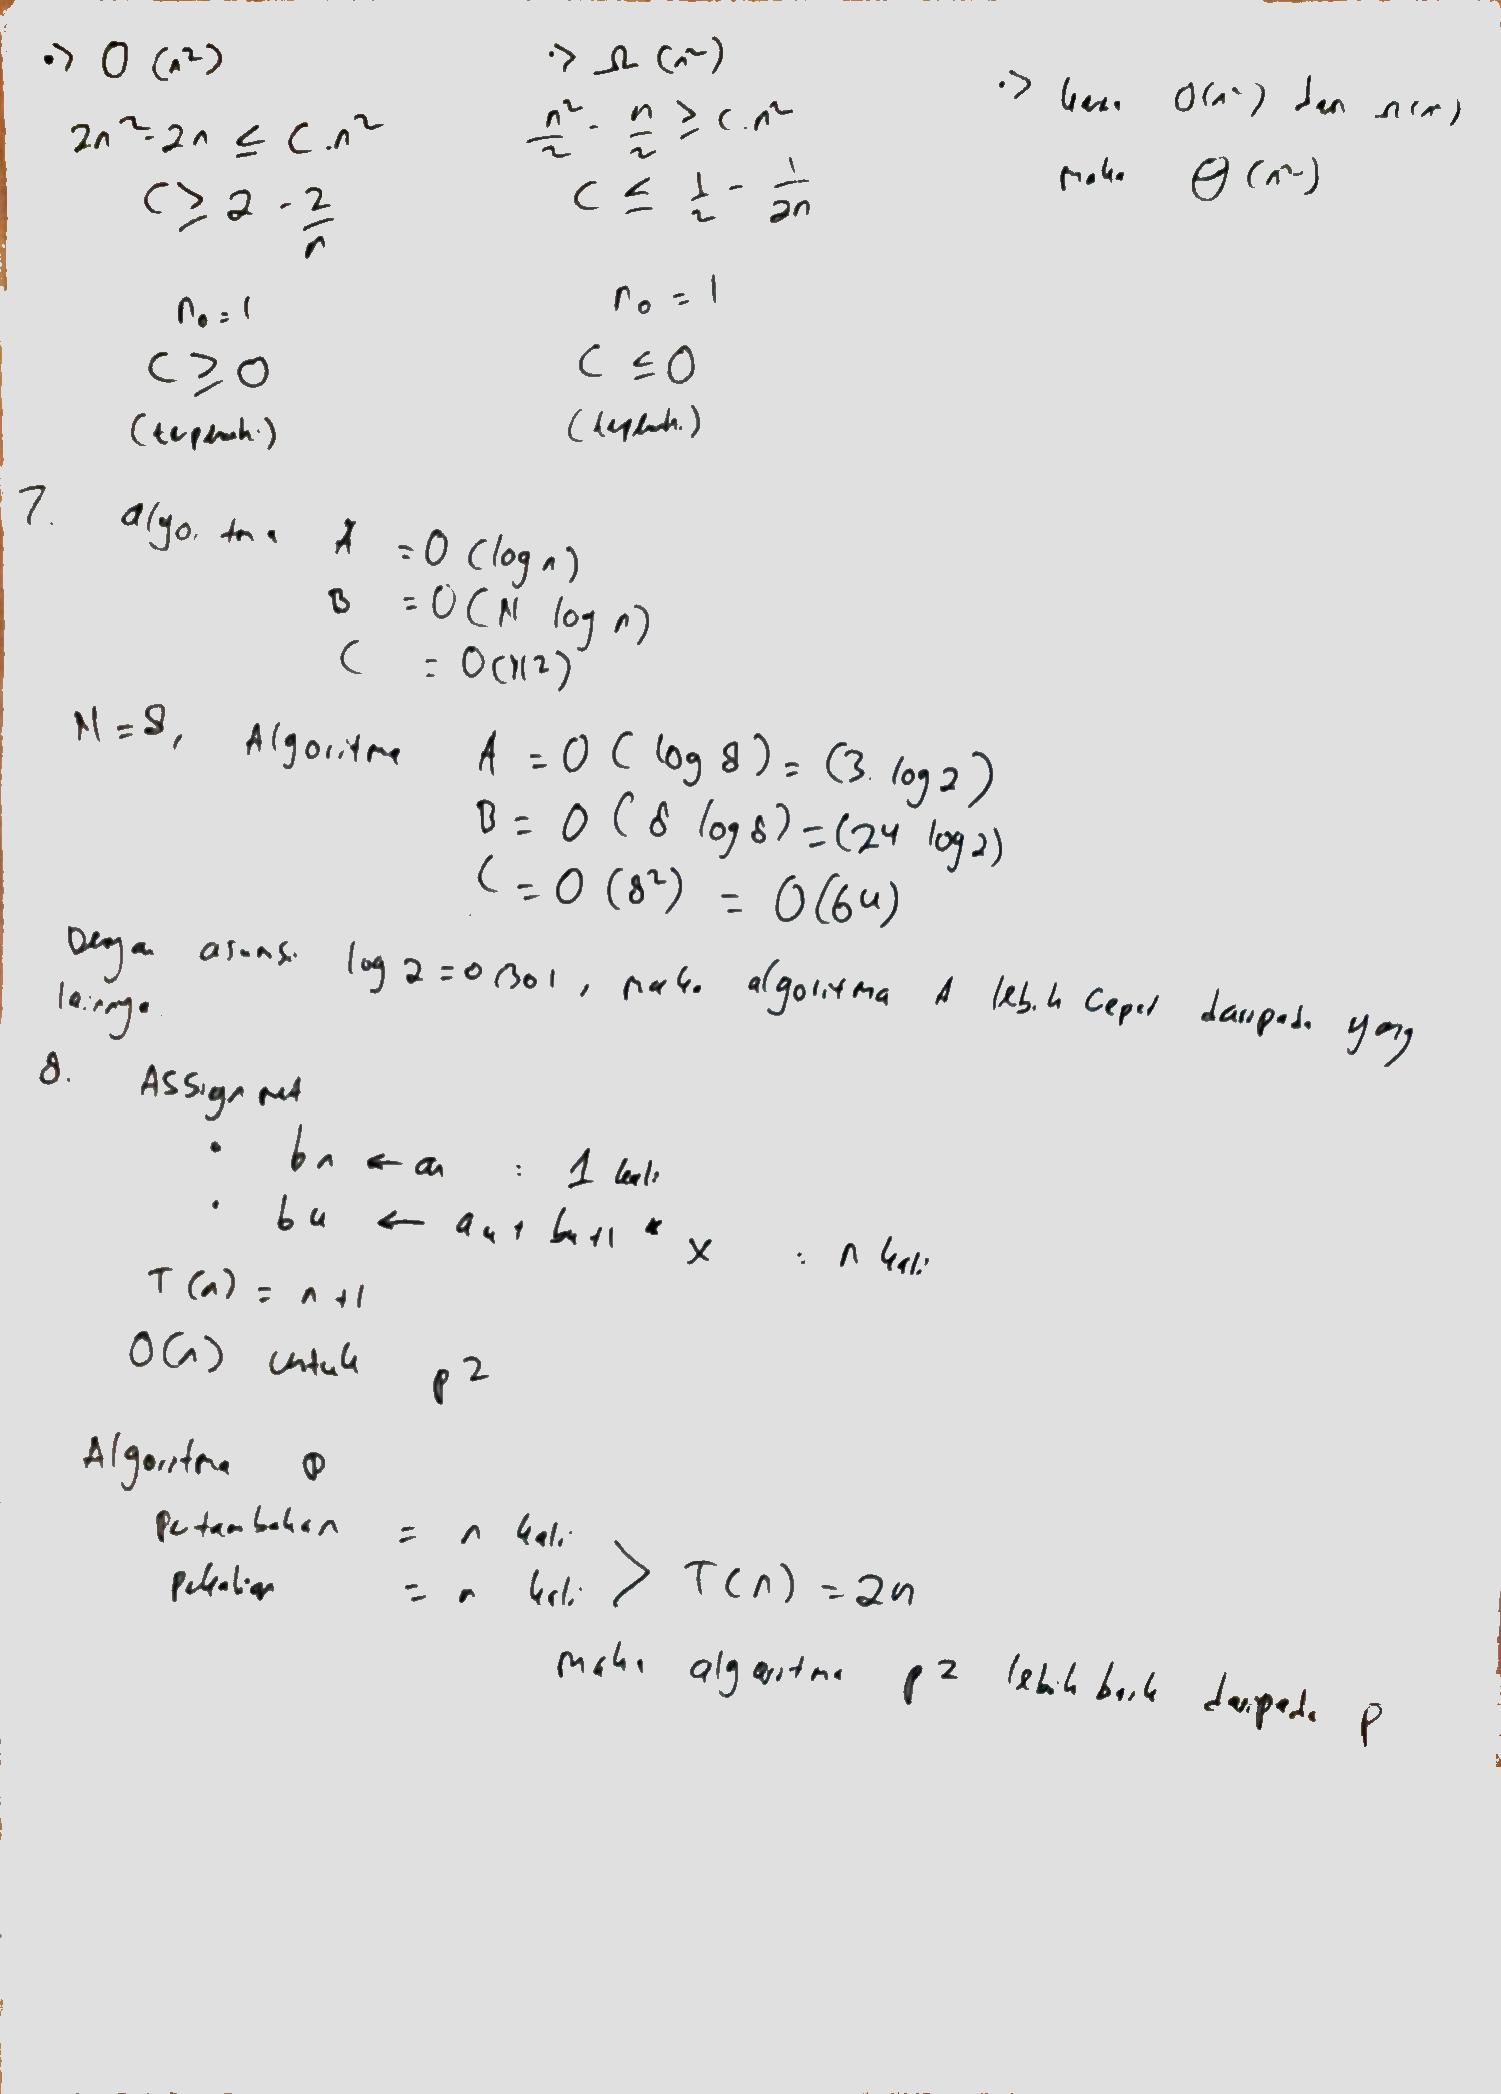 •> O (n²)
2n² - 2n ≤ C.n²
C ≥ 2 - 2/n
n₀ = 1
C ≥ 0
(terpenuhi)
•> Ω (n²)
n²/2 - n/2 ≥ C.n²
C ≤ 1/2 - 1/2n
n₀ = 1
C ≤ 0
(terpenuhi)
•> karena O(n²) dan Ω(n²)
maka Θ (n²)
7. algoritma A = O (log n)
B = O (N log n)
C = O(N2)
N = 8, Algoritma A = O ( log 8 ) = (3. log 2)
B = O ( 8 log 8) = (24 log 2)
C = O (8²) = O(64)
Dengan asumsi log 2 = 0.301, maka algoritma A lebih cepat daripada yang
lainnya
8. Assignment
• bn ← an : 1 kali
• bk ← ak + bk+1 * x : n kali
T(n) = n+1
O(n) untuk p2
Algoritma P
Pertambahan = n kali
Perkalian = n kali > T(n) = 2n
maka algoritma p2 lebih baik daripada p